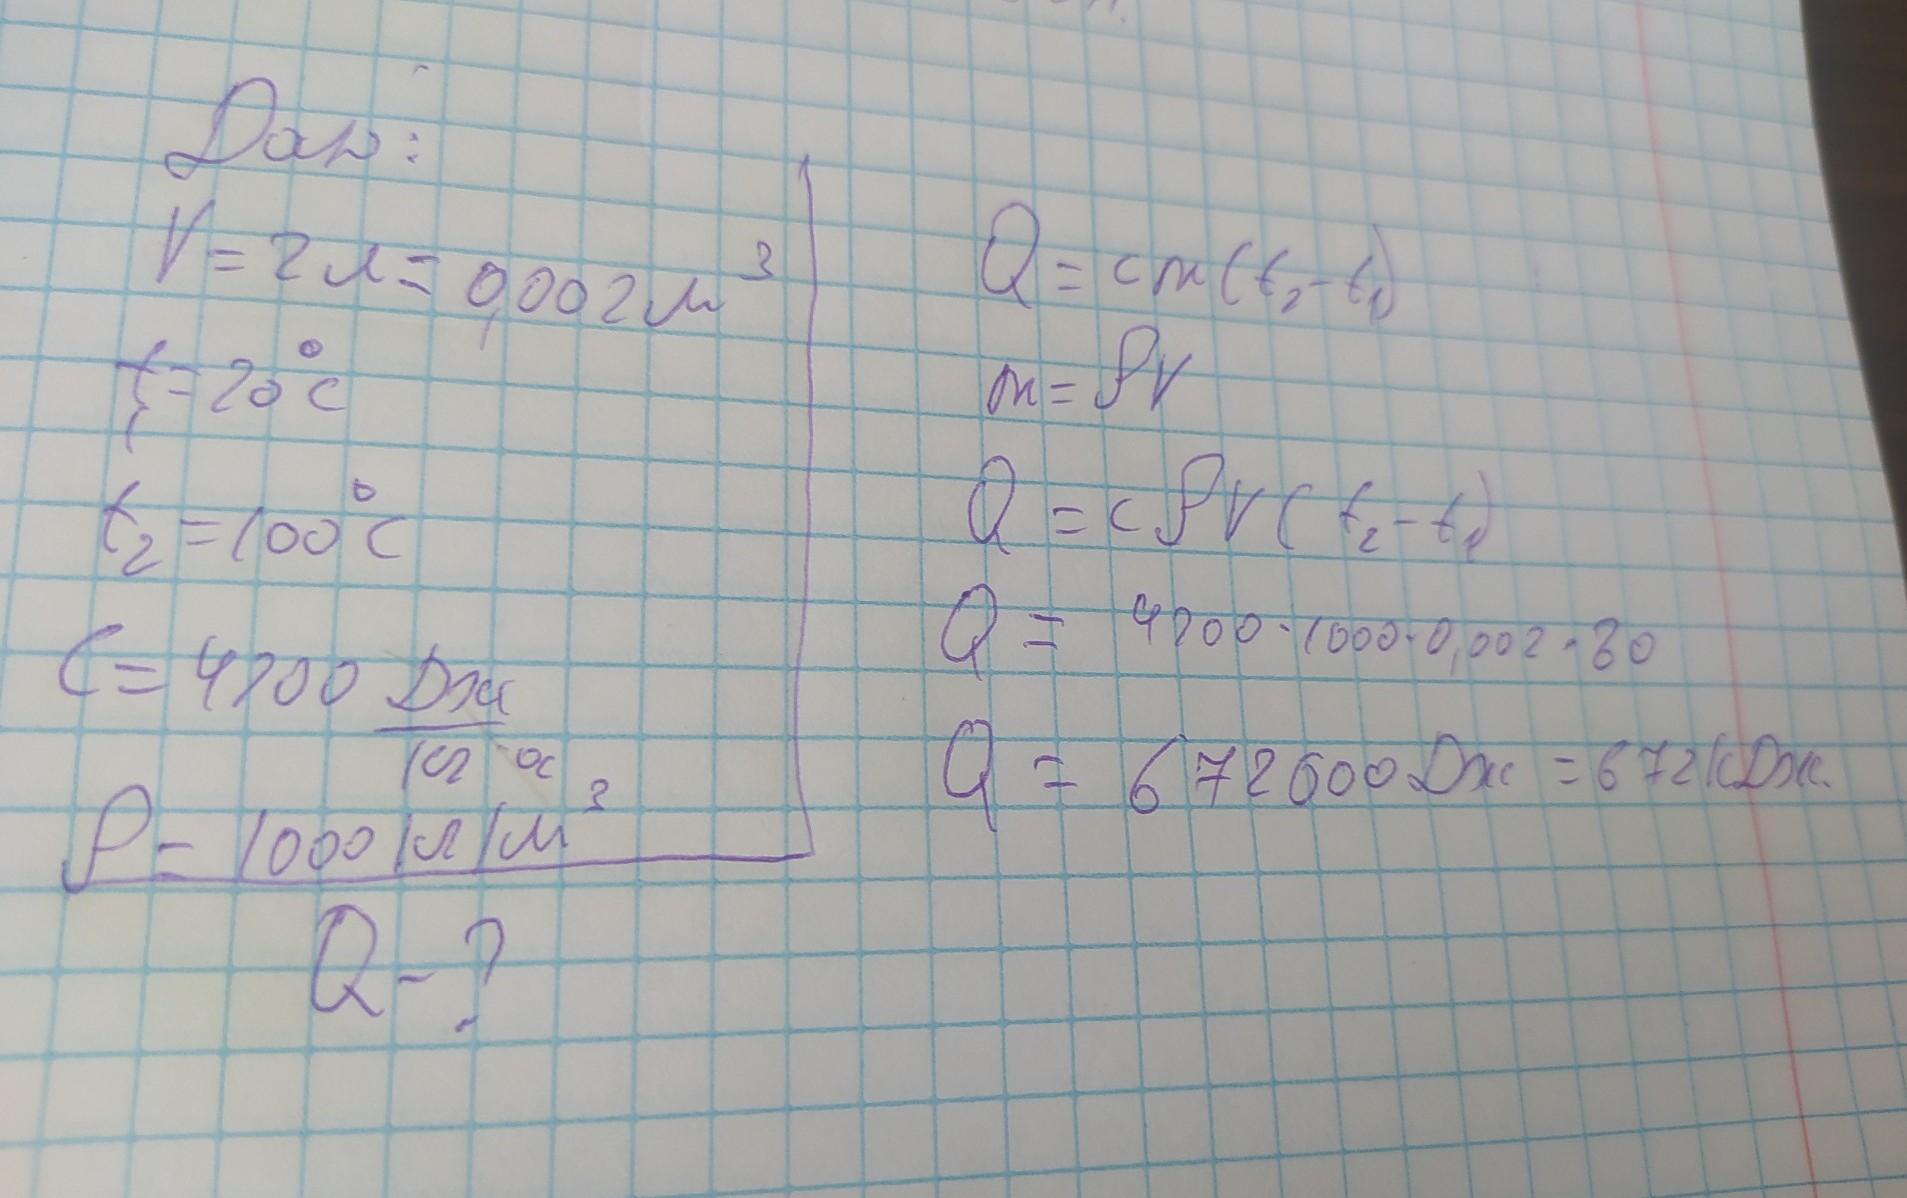 Дано:
V = 2 л = 0,002 м³
t₁ = 20°C
t₂ = 100°C
C = 4200 Дж/кг·°C
ρ = 1000 кг/м³
Q - ?
Q = cm(t₂ - t₁)
m = ρV
Q = cρV(t₂ - t₁)
Q = 4200·1000·0,002·80
Q = 672000 Дж = 672 кДж.